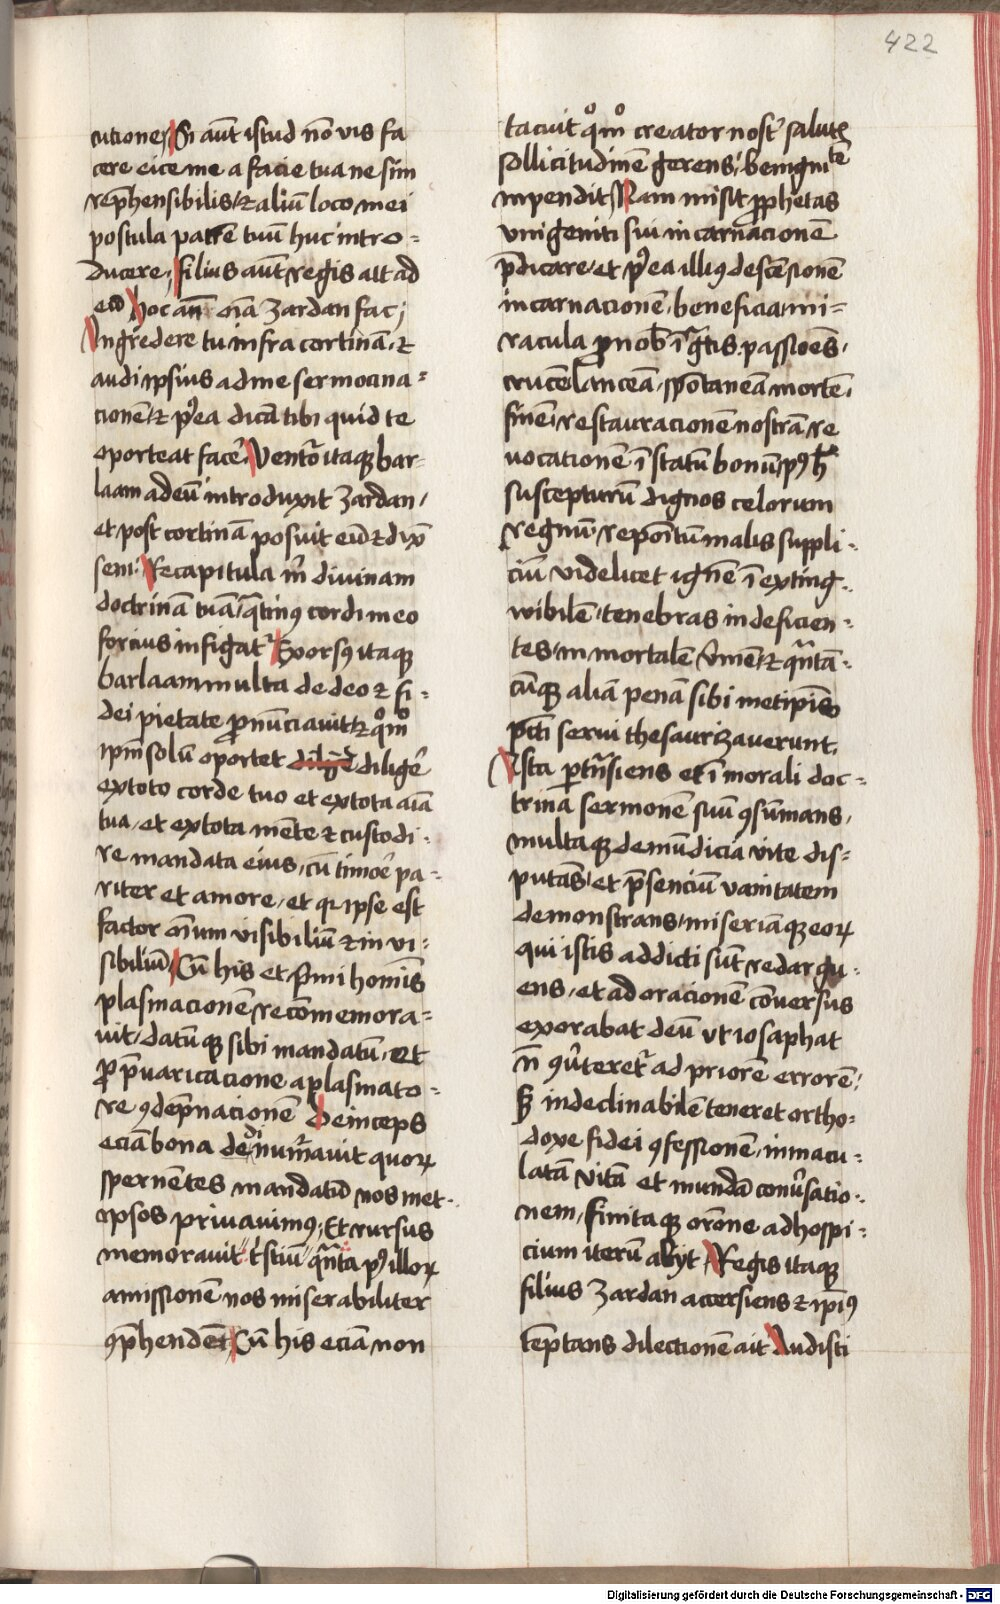 422
cutiones Si aūt istud nō vis fa
cere eice me a facie tua ne sim
rep̄hensibilis / ⁊ aliū loco mei
postula patrē tuū huc intro=
ducere / filius aūt regis ait ad
eū hoc an̄ oīa zardan fac /
Ingredere tu infra cortinā / ⁊
audi ipsius ad me sermocina=
cionē / ⁊ p9ea dicā tibi quid te
oporteat facē Ventꝝ itaqꝫ bar-
laam ad eū introduxit zardan /
et post cortinā posuit eū ⁊ dix̄
seni Recapitula m̄ divinam
doctrinā tuā / q̄tin9 cordi meo
forcius infigat᷑ Exors9 itaqꝫ
barlaam multa de deo ⁊ fi=
dei pietate ꝓnūciavit / ⁊ qͦmͦ
ipm̄ solū oportet diligē diligē
ex toto corde tuo et ex tota aīa
tua / et ex tota mēte ⁊ custodi-
re mandata eius / cū timoē pa-
riter et amore / et qꝛ ipse est
factor oīum visibiliū ⁊ in vi=
sibiliū / Cū his et p̄mi homīs
plasmacionē recōmemora=
vit / datūqꝫ sibi mandatū / Et
ꝓ p̄varicacione a plasmato-
re ꝯdēpnacionē Deinceps
eciā bona denūm̄avit di quoꝝ
spernētes mandatū nos met-
ipsos privavim9 / Et rursus
memoravit t̄stiū q̄nta p9 illoꝝ
amissionē nos miserabiliter
ꝯp̄hendēt Cū his eciā non
tacuit qͦmͦ creator nost᷑ salutꝭ
sollicitudinē gerens / benigniᵗᵉ
inpendit Nam misit ꝓphetas
vnigeniti sui incarnacionē
p̄dicare / et p9ea illi9 descēsionē
incarnacionē / beneficia / mi=
racula ꝓ nob̄ īg̃tis passioēs /
crucē lanceā / spōtaneā mortē /
finē / restauracionē nostrā re
vocationē ī statū bonū / p9 h̄
suscepturū dignos celorum
regnū / repoītū malis suppli-
ciū videlicet ignē īexting-
wibilē / tenebras indeficien-
tes / inmortalē v̄mē / ⁊ q̄ntā-
cūqꝫ aliā penā sibi metip̄is
pct̄i servi thesaurizaverunt
Ista ꝑtn̄siens et ī morali doc-
trinā sermonē suū ꝯsūmans /
multaqꝫ de mūdicia vite dis=
putās / et p̄senciū vanitatem
demonstrans / miseriāqꝫ eoꝝ
qui istis addicti sūt redargu-
ens / et ad oracionē cōversus
exorabat deū vt iosaphat
n̄ ꝯv̄teret᷑ ad priorē errorē /
sꝫ indeclinabilē teneret ortho-
doxe fidei ꝯfessionē / inmacu-
latā vitā et mundā conv̄satio-
nem / finitaqꝫ orōne ad hospi-
cium iterū abijt / Regis itaqꝫ
filius zardan accersiens ⁊ ip̄i9
tēptans dilectionē ait Audisti
Digitalisierung gefördert durch die Deutsche Forschungsgemeinschaft - DFG